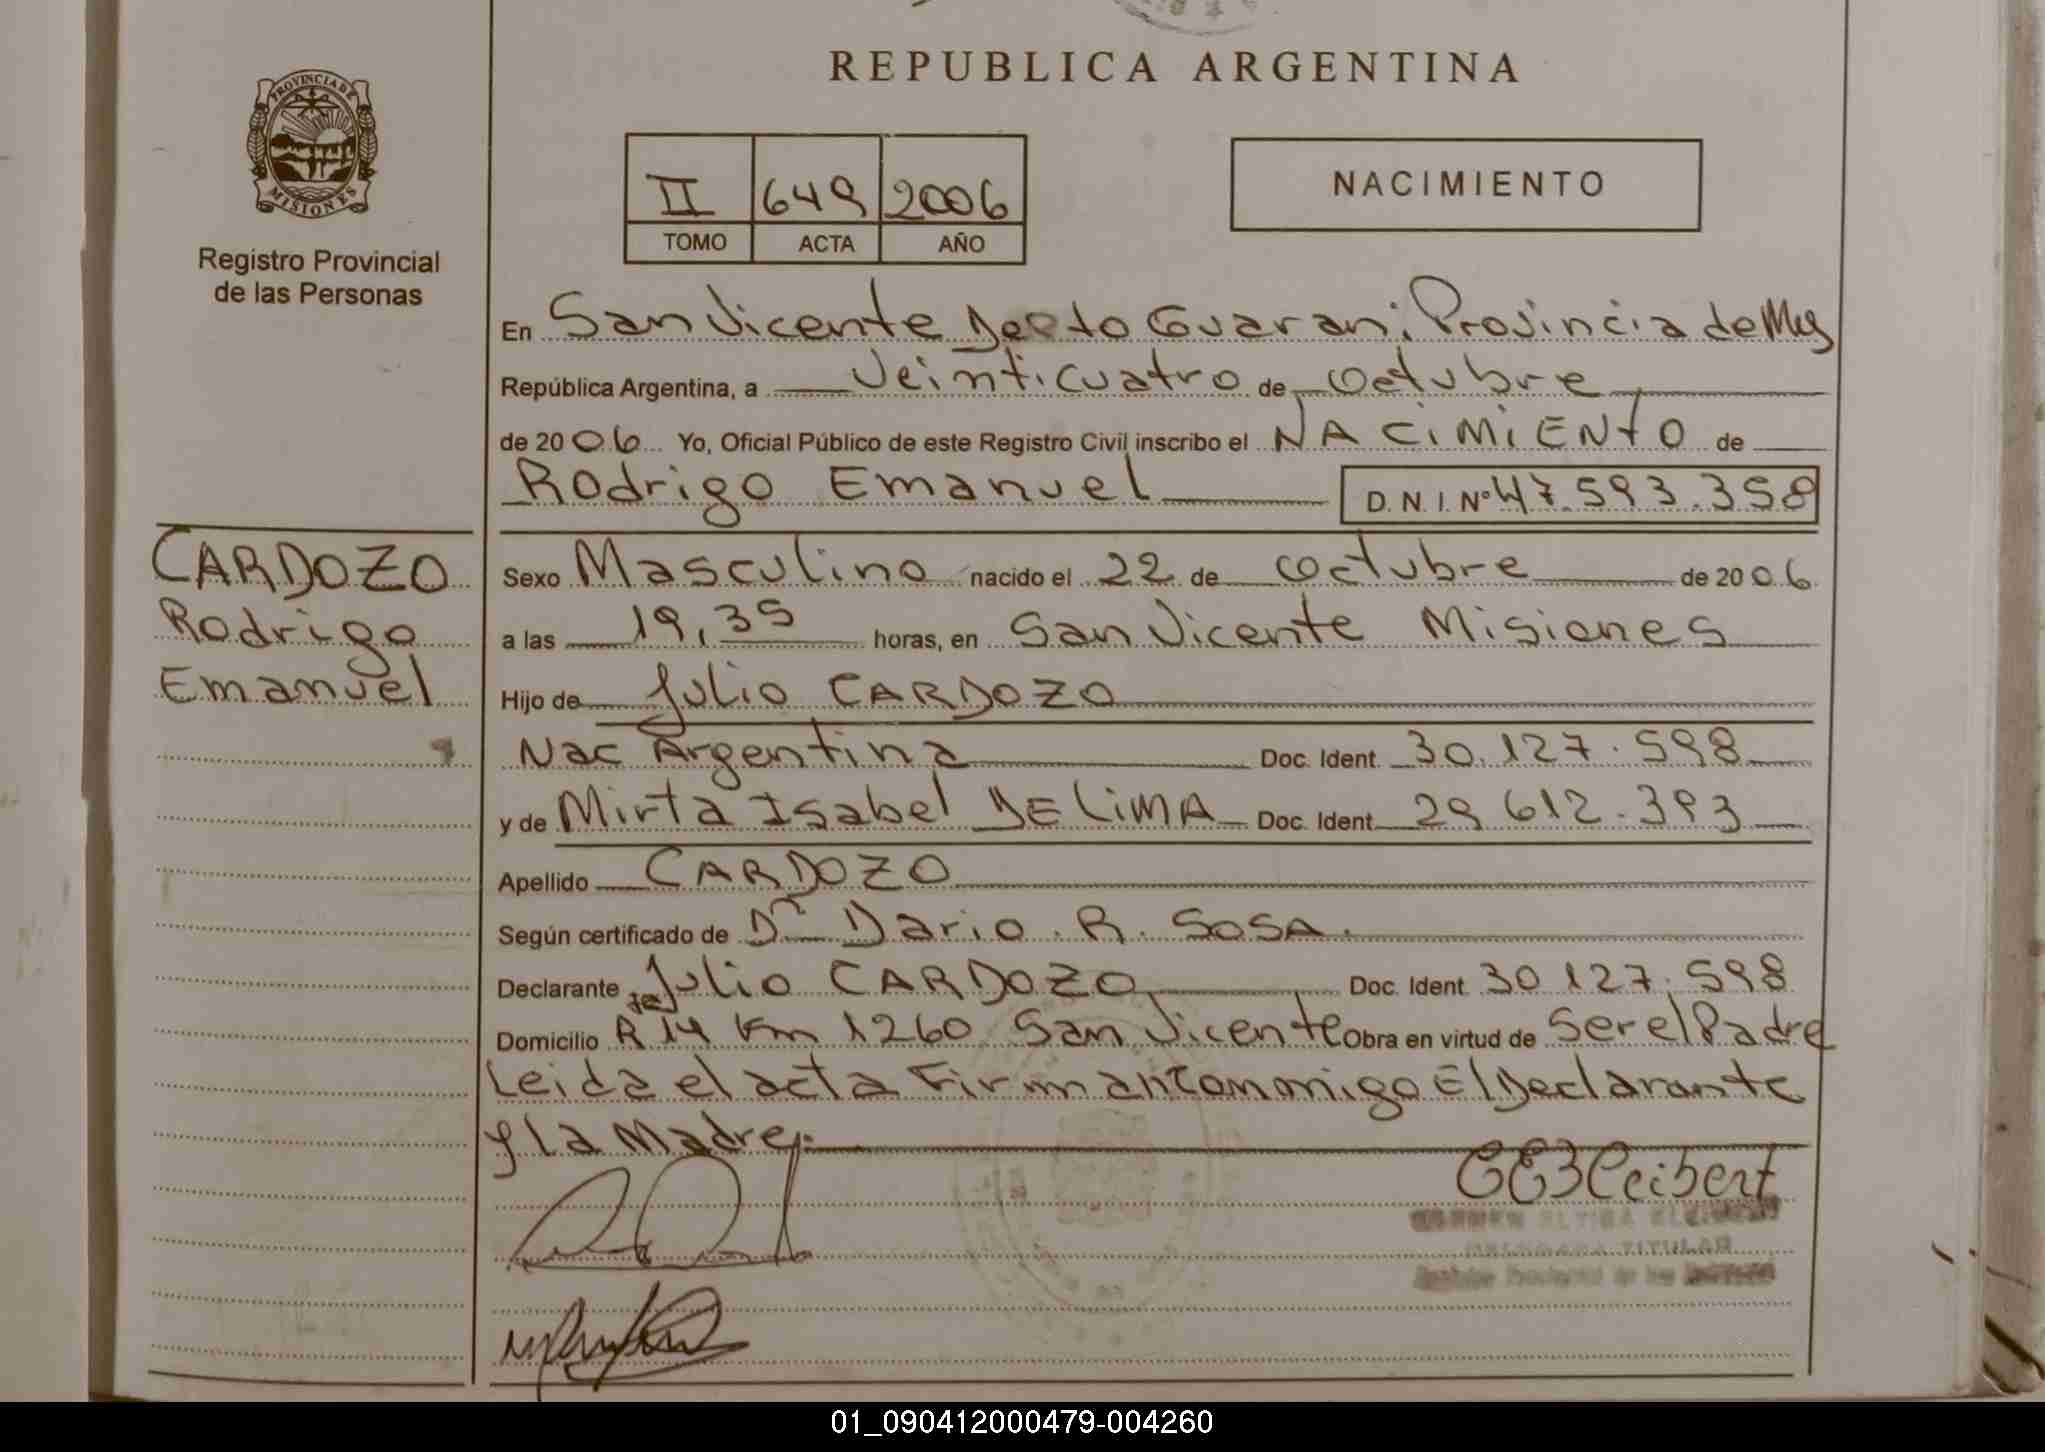 REPUBLICA ARGENTINA
PROVINCIA DE
MISIONES
Registro Provincial
de las Personas
II 649 2006
TOMO ACTA AÑO
NACIMIENTO
En San Vicente Depto Guarani Provincia de Mnes
República Argentina, a Veinticuatro de octubre
de 2006 Yo, Oficial Público de este Registro Civil inscribo el NACIMIENTO de
Rodrigo Emanuel D. N. I. Nº 47.593.358
CARDOZO
Rodrigo
Emanuel
Sexo Masculino nacido el 22 de octubre de 2006
a las 19,35 horas, en San Vicente Misiones
Hijo de Julio CARDOZO
Nac Argentina Doc. Ident. 30.127.598
y de Mirta Isabel DE LIMA Doc. Ident. 29 612.393
Apellido CARDOZO
Según certificado de Dr Dario R. SOSA.
Declarante Julio CARDOZO Doc. Ident. 30 127.598
Domicilio R 14 Km 1260 San Vicente Obra en virtud de Ser el Padre
Leida el acta Firman Conmigo El Declarante
y la Madre.
TITULAR
01_090412000479-004260